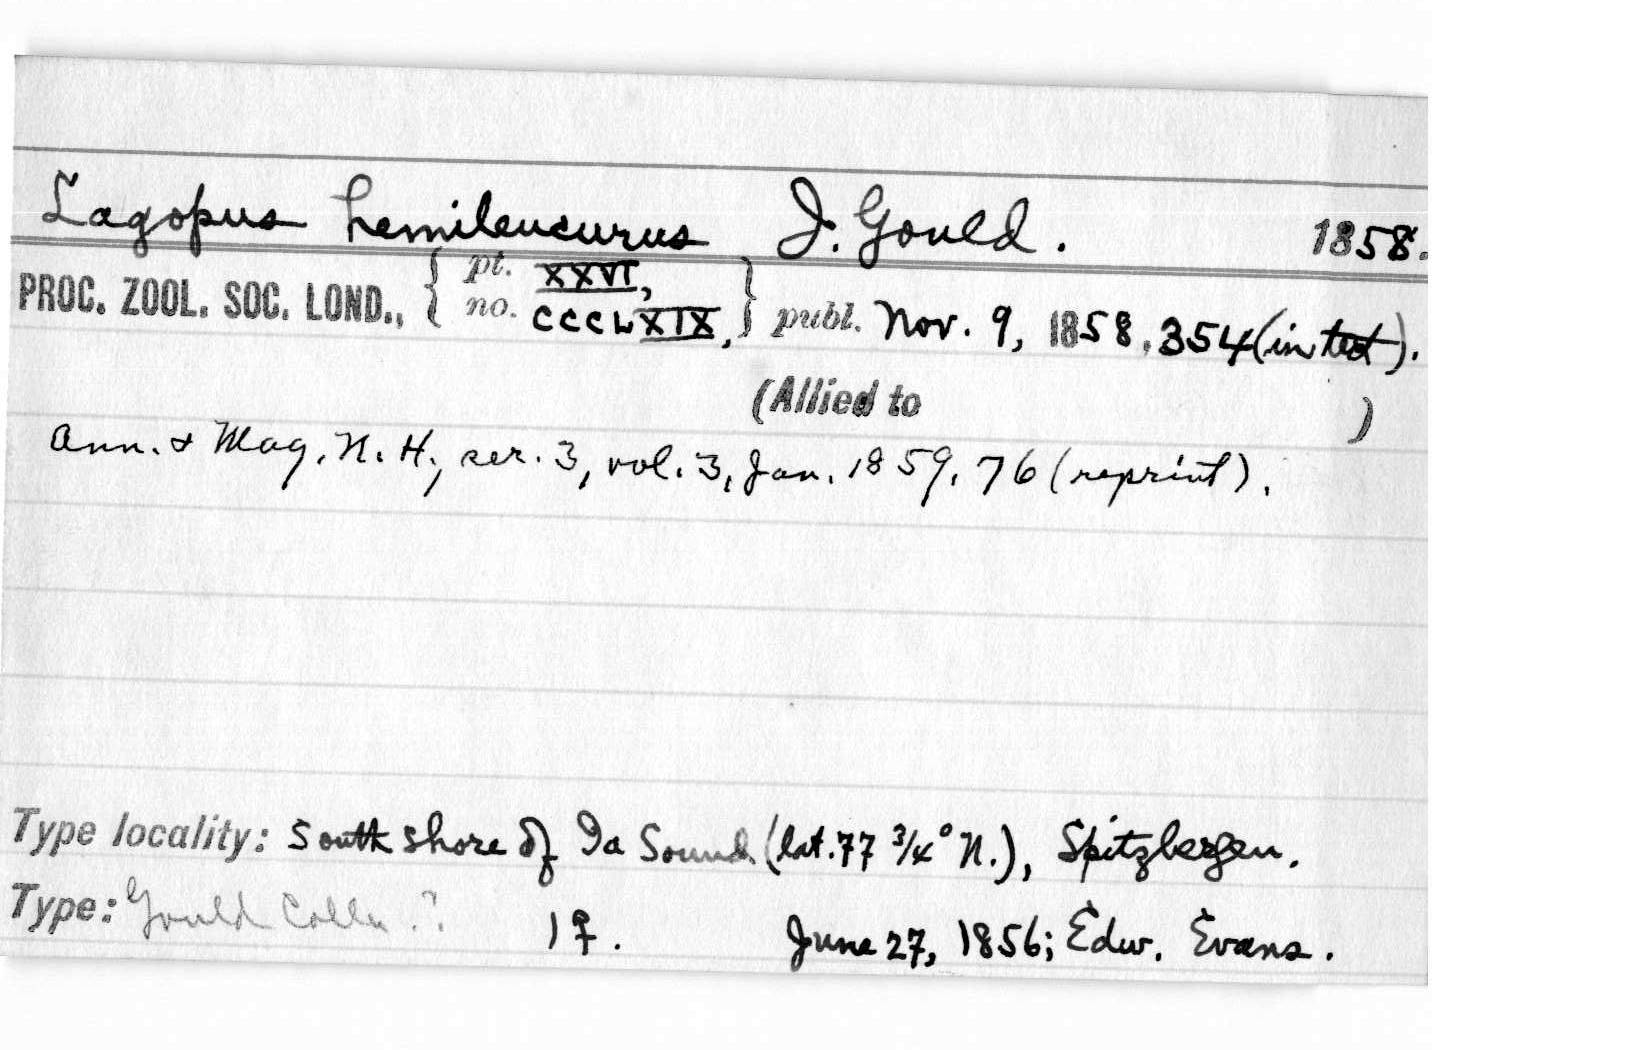 Lagopus hemileucurus J. Gould. 1858.
PROC. ZOOL. SOC. LOND., { pt. XXVI, no. CCCLXIX, } publ. Nov. 9, 1858, 354 (in text).
(Allied to )
Ann. & Mag. N. H., ser. 3, vol. 3, Jan. 1859, 76 (reprint).
Type locality: South shore of Ia Sound (lat. 77 3/4° N.), Spitzbergen.
Type: Gould Colln.? 1♀. June 27, 1856; Edw. Evans.